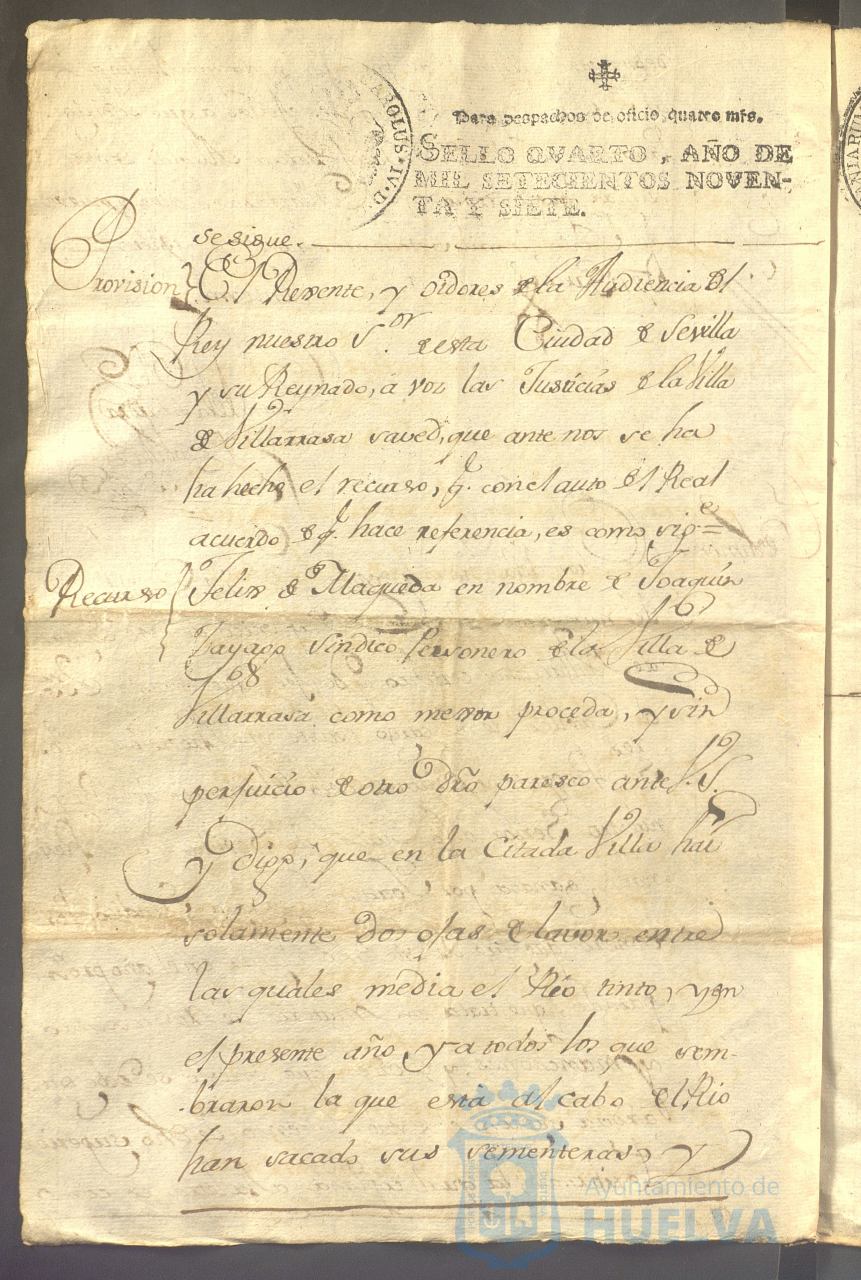 CAROLUS·IV·D
Para despachos de oficio quatro mrs.
SELLO QVARTO, AÑO DE
MIL SETECIENTOS NOVEN-
TA Y SIETE.
se sigue.
Provision } El Rexente, y oidores de la Audiencia del
Rey nuestro S.or de esta Ciudad de Sevilla
y su Reynado, á vos las Justicias de la Villa
de Villarrasa saved, que ante nos se ha
ha hecho el recurso, q. con el auto del Real
acuerdo de q. hace referencia, es como sigue=
Recurso { Felix de Maqueda en nombre de Joaquin
Tayapo sindico Personero de la Villa de
Villarrasa como mexor proceda, y sin
perjuicio de otro dro paresco ante V.S.
y Digo, que en la Citada Villa hai
solamente dos ojas de lavor entre
las quales media el Rio tinto, y en
el presente año ya todos los que sem-
braron la que está al cabo del Rio
han sacado sus sementeras, y
Ayuntamiento de
HUELVA